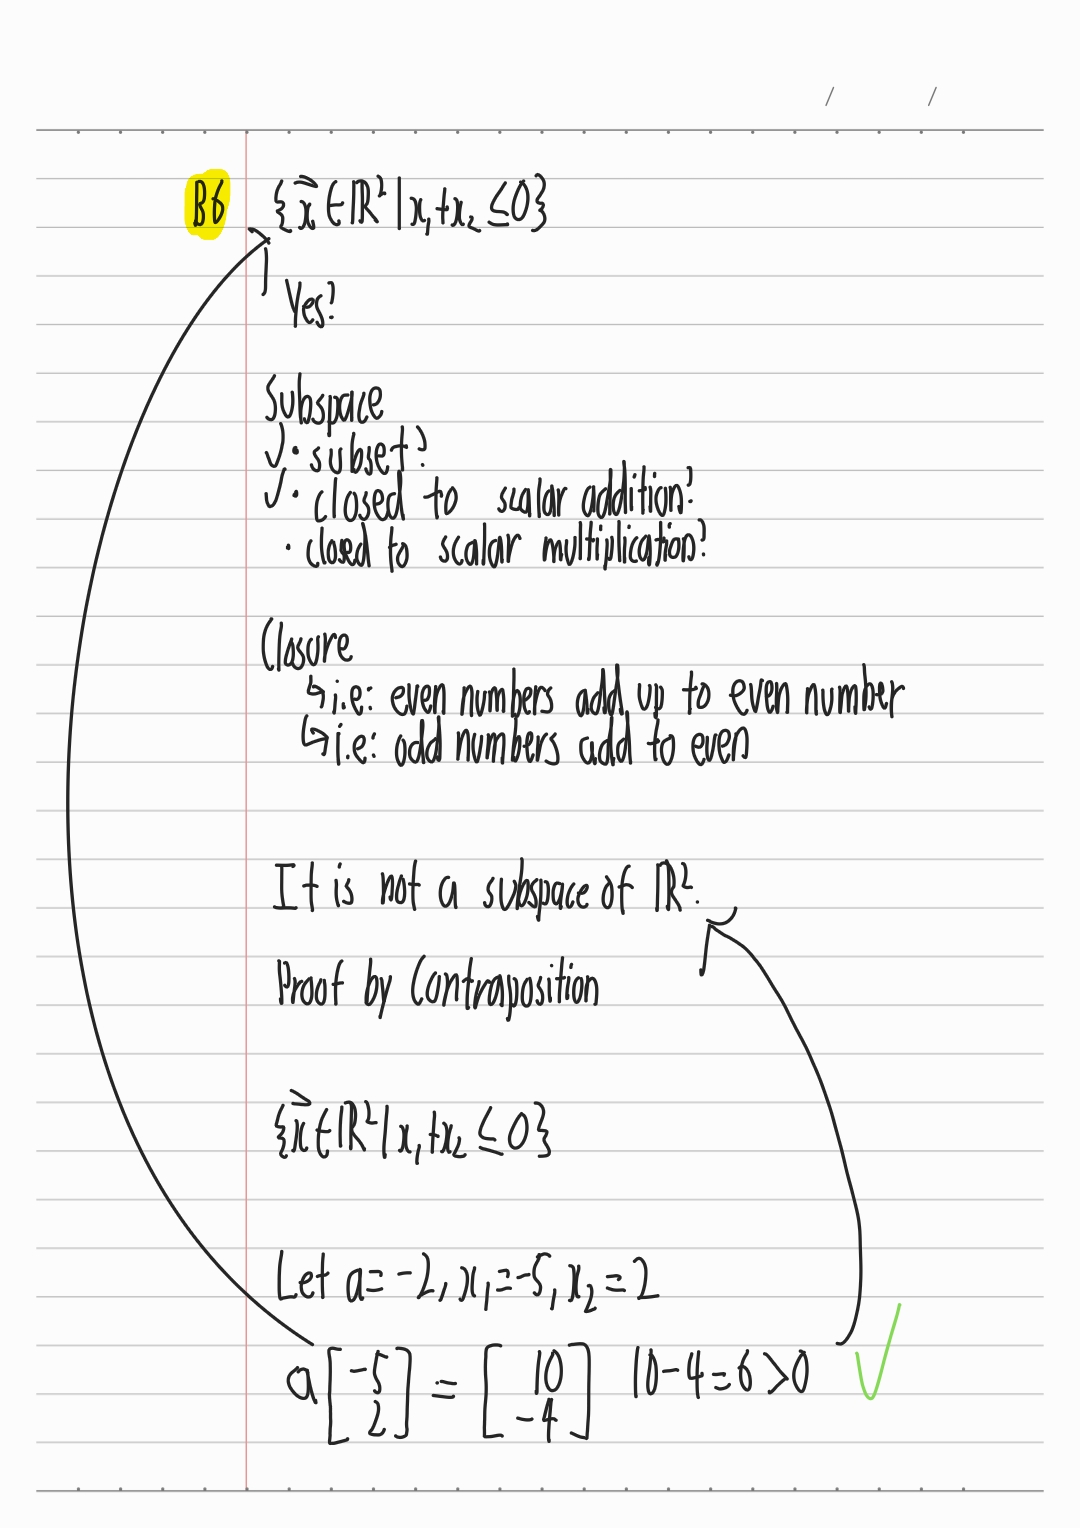 / /
B6 {x⃗ ∈ ℝ² | x₁+x₂ ≤0}
Yes?
Subspace
✓ · subset?
✓ · closed to scalar addition?
· closed to scalar multiplication?
Closure
↳ i.e: even numbers add up to even number
↳ i.e: odd numbers add to even
It is not a subspace of ℝ².
Proof by Contraposition
{x⃗ ∈ ℝ² | x₁+x₂ ≤ 0}
Let a=-2, x₁=-5, x₂=2
a[-5 2] = [10 -4] 10-4=6>0 ✓